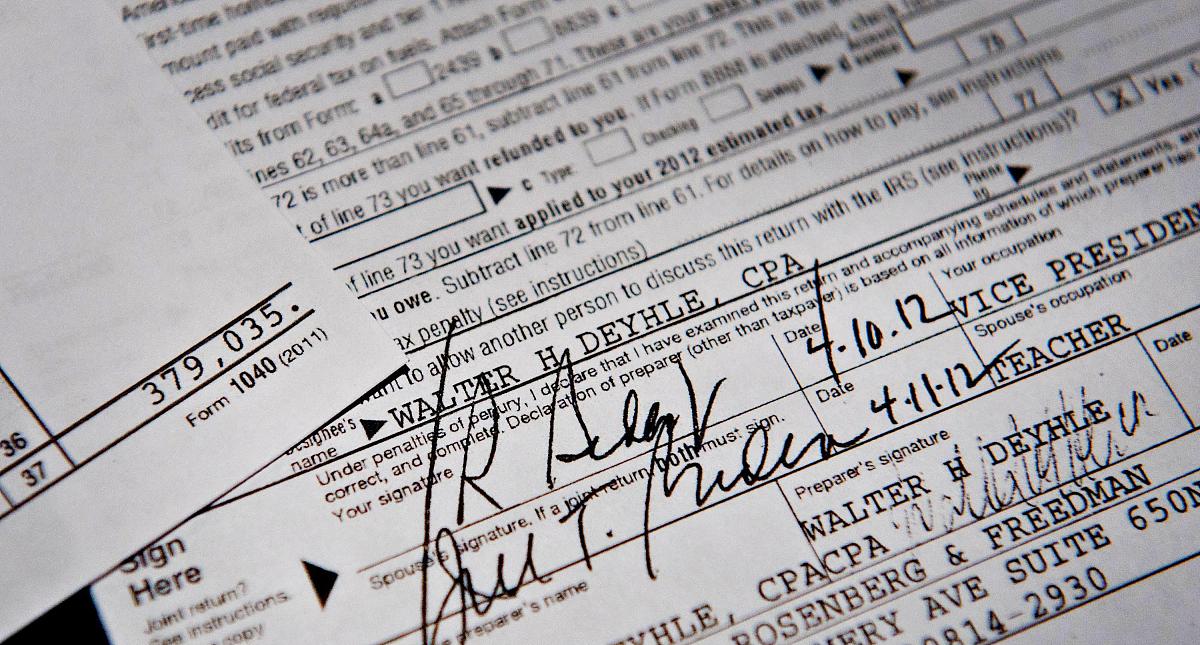 mount paid with
cess social security and tier 1
dit for federal tax on fuels. Attach Form
its from Form: a 2439 b 8839
nes 62, 63, 64a, and 65 through 71. These are your
72 is more than line 61, subtract line 61 from line 72. This is the
t of line 73 you want refunded to you. If Form 8888 is attached, check
c Type: Checking Savings
f line 73 you want applied to your 2012 estimated tax
u owe. Subtract line 72 from line 61. For details on how to pay, see instructions
76
ax penalty (see instructions)
77
nt to allow another person to discuss this return with the IRS (see instructions)?
X Yes
signee's
name
WALTER H DEYHLE, CPA
Phone
no.
Under penalties of perjury, I declare that I have examined this return and accompanying schedules and statements, and
correct, and complete. Declaration of preparer (other than taxpayer) is based on all information of which preparer has
Your signature
Date
4.10.12
Your occupation
VICE PRESIDEN
Spouse's signature. If a joint return, both must sign.
Date
4.11.12
Spouse's occupation
TEACHER
Sign
Here
Joint return?
See instructions.
copy
preparer's name
Preparer's signature
Date
WALTER H DEYHLE
CPA
EYHLE, CPA
ROSENBERG & FREEDMAN
MERY AVE SUITE 650N
0814-2930
379,035.
Form 1040 (2011)
36
37